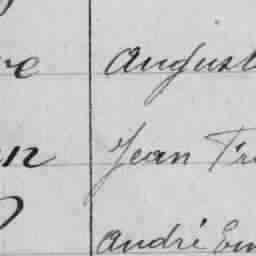 August
Jean Fr
André Em